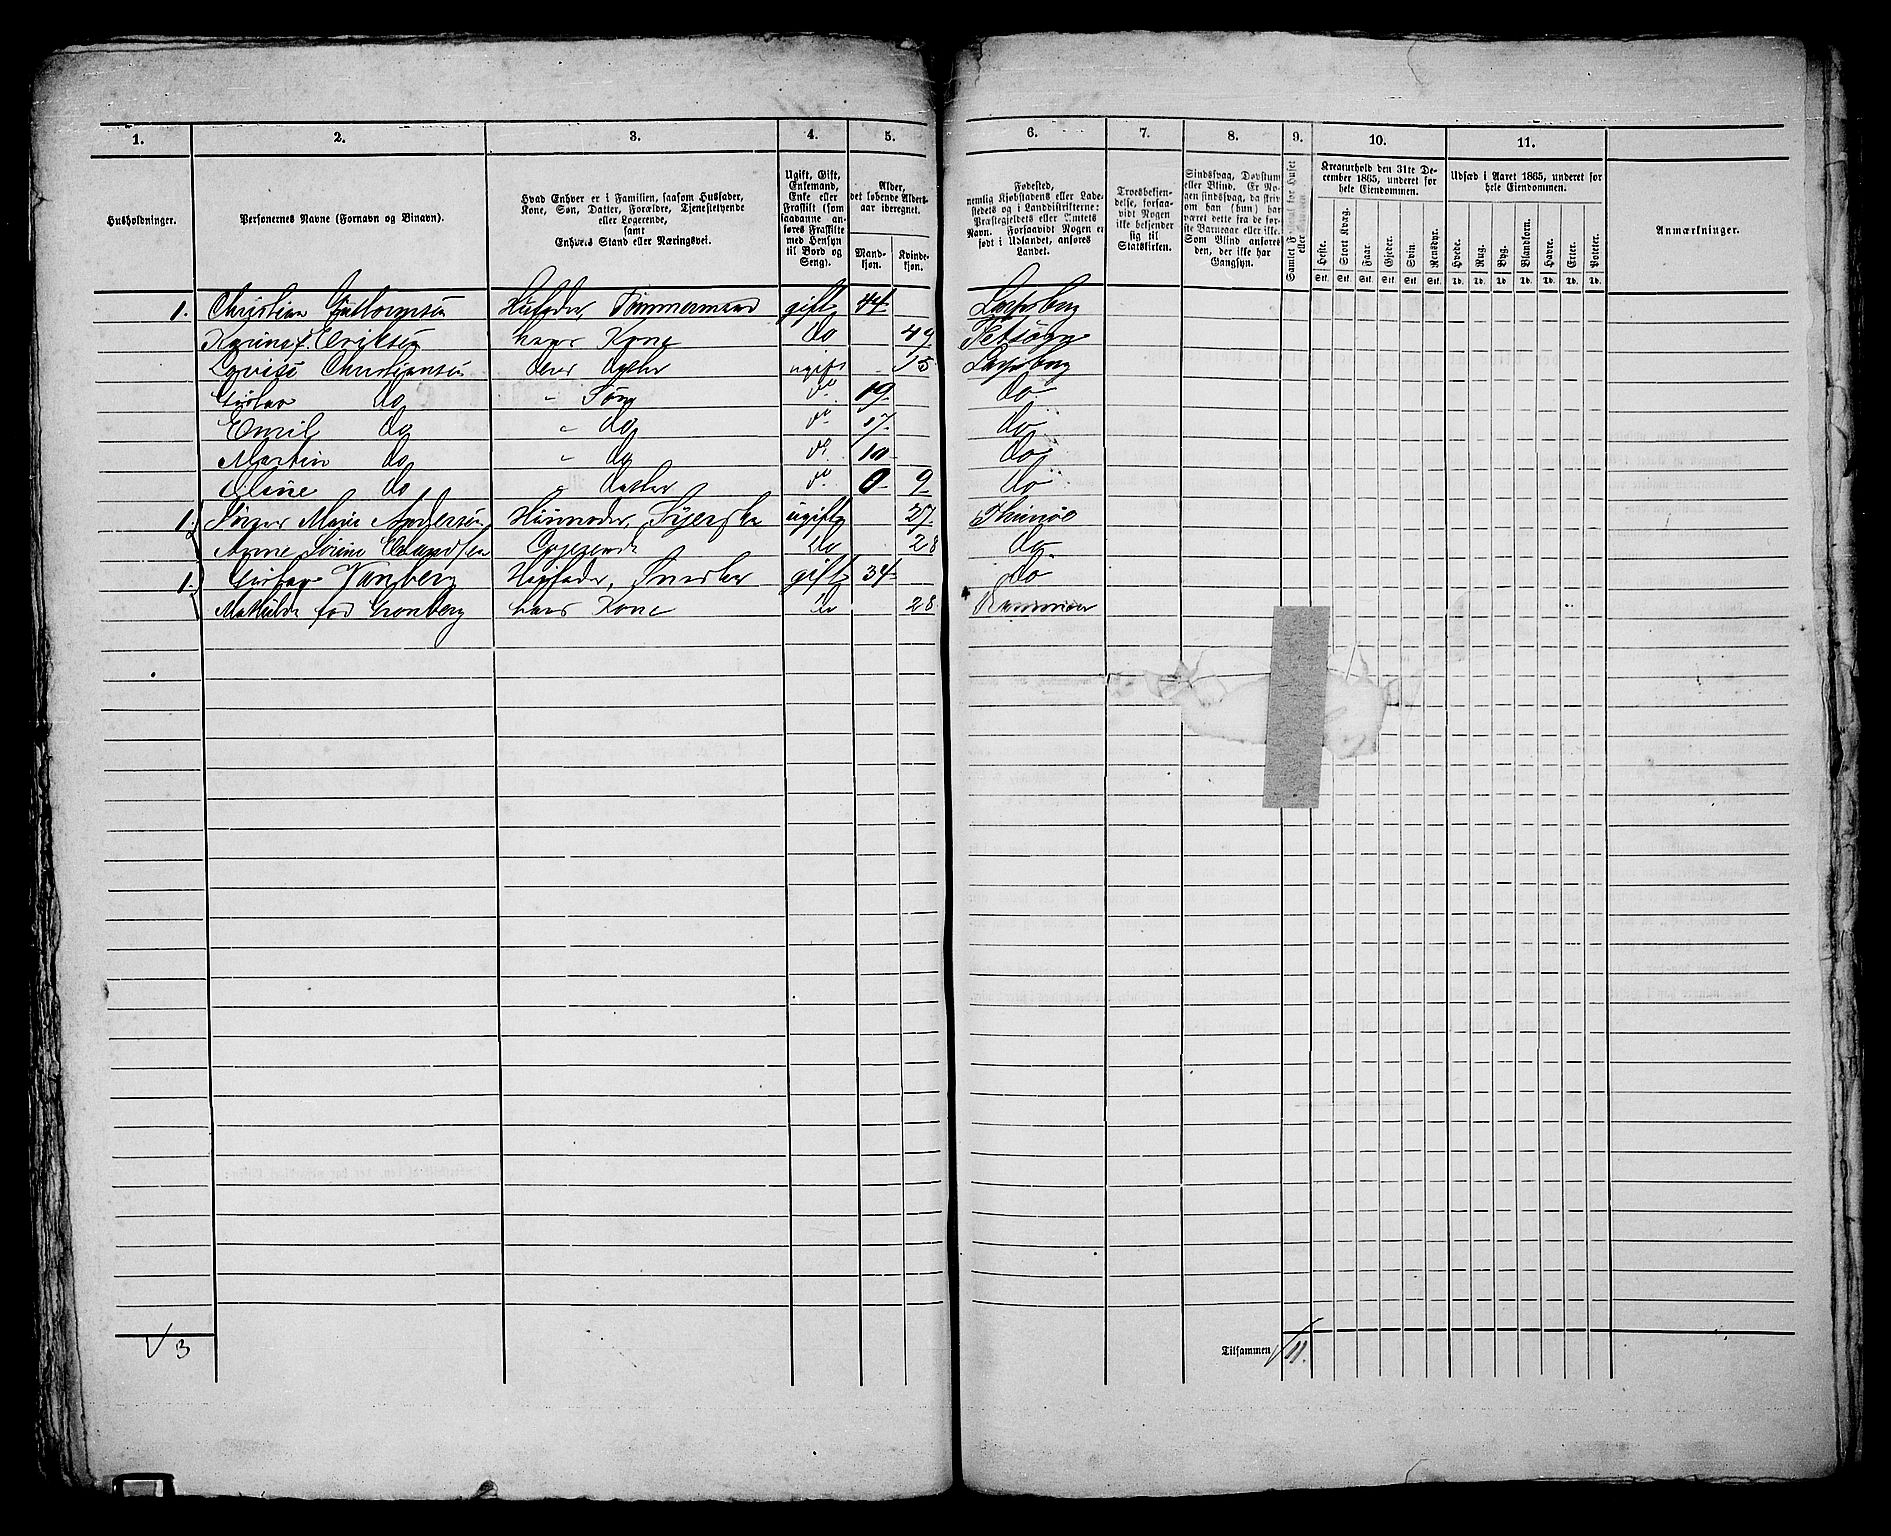 1. 2. 3. 4. 5. 6. 7. 8. 9. 10. 11.
Husholdninger.
Personernes Navne (Fornavn og Binavn).
Hvad Enhver er i Familien, saasom Husfader,
Kone, Søn, Datter, Forældre, Tjenestetyende
eller Logerende,
samt
Enhvers Stand eller Næringsvei.
Ugift, Gift,
Enkemand,
Enke eller
Fraskilt (som
saadanne an-
føres Fraskilte
med Hensyn
til Bord og
Seng).
Alder,
det løbende Alders-
aar iberegnet.
Mand-
kjøn.
Kvinde-
kjøn.
Fødested,
nemlig Kjøbstadens eller Lade-
stedets og i Landdistrikterne:
Præstegjeldets eller Amtets
Navn. Forsaavidt Nogen er
født i Udlandet, anføres
Landet.
Troesbekjen-
delse, forsaa-
vidt Nogen
ikke bekjender
sig til
Statskirken.
Sindssvag, Døvstum
eller Blind. Er No-
gen sindssvag, da skriv
om han (hun) har
været dette fra de før-
ste Barneaar eller ikke.
Som Blind anføres
den, der ikke har
Gangsyn.
Kreaturhold den 31te De-
cember 1865, underet for
hele Eiendommen.
Heste. Stort Kvæg. Faar. Gjeder. Svin. Rensdyr.
Stk. Stk. Stk. Stk. Stk. Stk.
Udsæd i Aaret 1865, underet for
hele Eiendommen.
Hvede. Rug. Byg. Blandkorn. Havre. Erter. Poteter.
Td. Td. Td. Td. Td. Td. Td.
Anmærkninger.
1. Christian Guttormsen Husfader, Tømmermand gift 44
Karine f. Eriksen hans Kone do 49
Lovise Christiansen deres datter ugift 15
Gustav do " Søn do 19 do
Emil do " do do 17 do
Martin do " do do 10 do
Oline do " datter do 0 9 do
1. Marie Andersen Husmoder, Syerske ugift 27
Anne Sørine do 28 do
1. Gustav Husfader, Snedker gift 34 do
Mathilde fød Gronberg hans Kone do 28
3
Tilsammen 11.